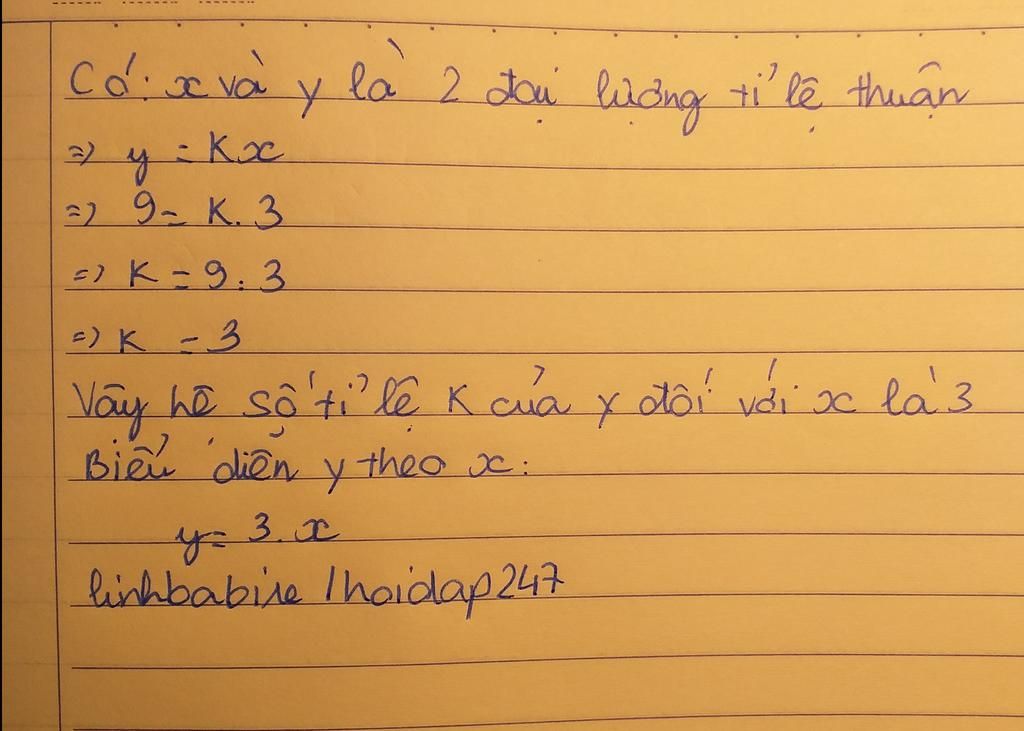 Có: x và y là 2 đại lượng tỉ lệ thuận
=> y = Kx
=> 9 = K. 3
=> K = 9 : 3
=> K = 3
Vậy hệ số tỉ lệ K của y đối với x là 3
Biểu diễn y theo x:
y = 3. x
linhbabie / hoidap247